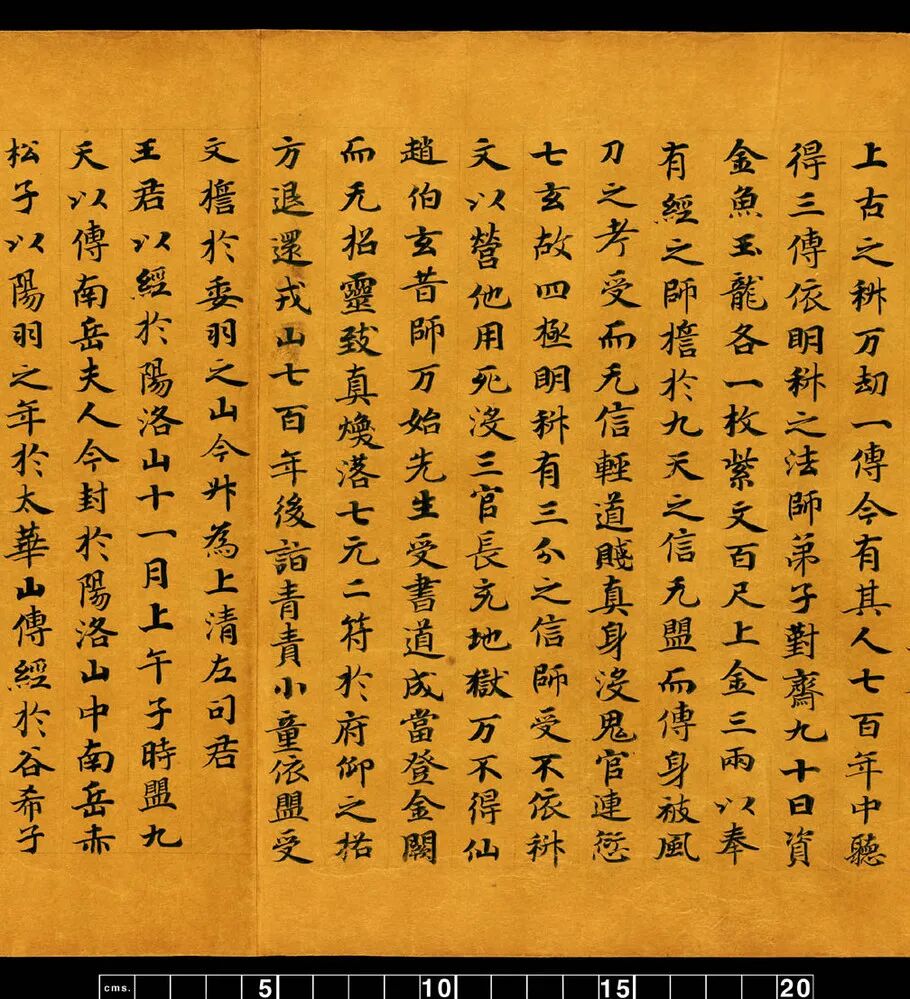 上古之科万劫一傳今有其人七百年中聽
得三傳依明科之法師弟子對齋九十日資
金魚玉龍各一枚紫文百尺上金三兩以奉
有經之師擔於九天之信无盟而傳身被風
刀之考受而无信輕道賤真身沒鬼官連愆
七玄故四極明科有三分之信師受不依科
文以營他用死沒三官長充地獄万不得仙
趙伯玄昔師万始先生受書道成當登金闕
而无招靈致真煥落七元二符於府仰之格
方退還戎山七百年後詣青責小童依盟受
文擔於委羽之山今升為上清左司君
王君以經於陽洛山十一月上午子時盟九
天以傳南岳夫人今封於陽洛山中南岳赤
松子以陽羽之年於太華山傳經於谷希子
cms. 5 10 15 20